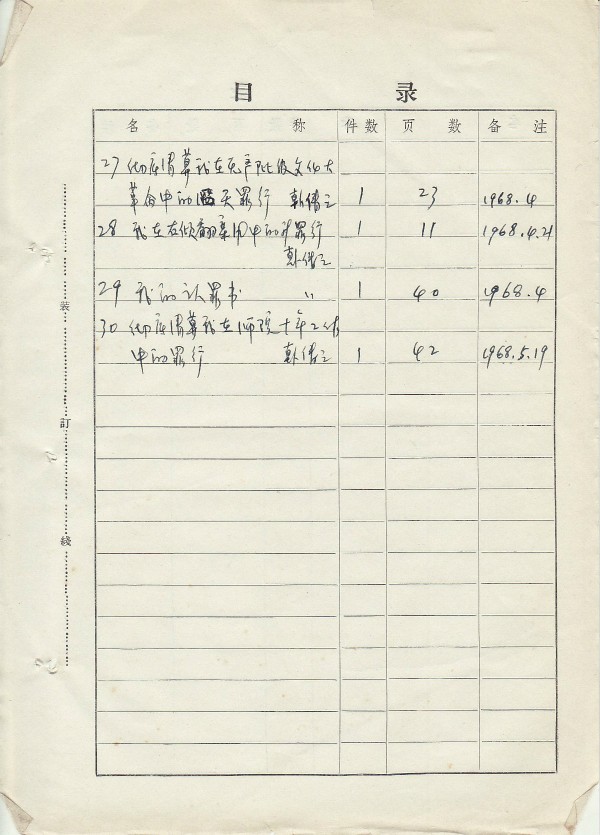 目 录
名 称 件数 页 数 备 注
27 彻底清算我在无产阶级文化大
革命中的滔天罪行 韩倩之 1 23 1968.4
28 我在右倾翻案风中的罪行 1 11 1968.4.21
韩倩之
29 我的认罪书 〃 1 40 1968.4
30 彻底清算我在师院十年工作
中的罪行 韩倩之 1 42 1968.5.19
装
订
线